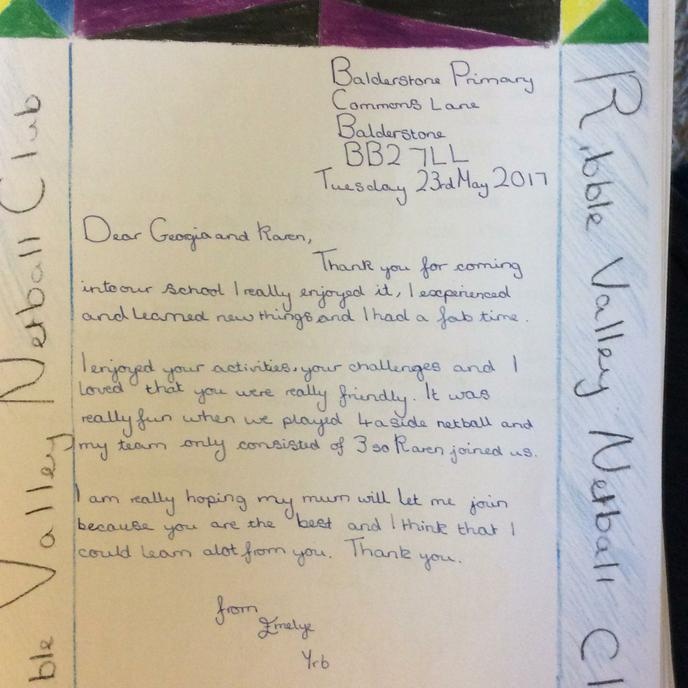 Balderstone Primary
Commons Lane
Balderstone
BB2 7LL
Tuesday 23rd May 2017
Dear Georgia and Karen,
Thank you for coming
into our school I really enjoyed it, I experienced
and learned new things and I had a fab time.
I enjoyed your activities, your challenges and I
loved that you were really friendly. It was
really fun when we played 4 a side netball and
my team only consisted of 3 so Karen joined us.
I am really hoping my mum will let me join
because you are the best and I think that I
could learn alot from you. Thank you.
from
Emelye
Yrb
ble Valley Netball Club
Ribble Valley Netball Cl